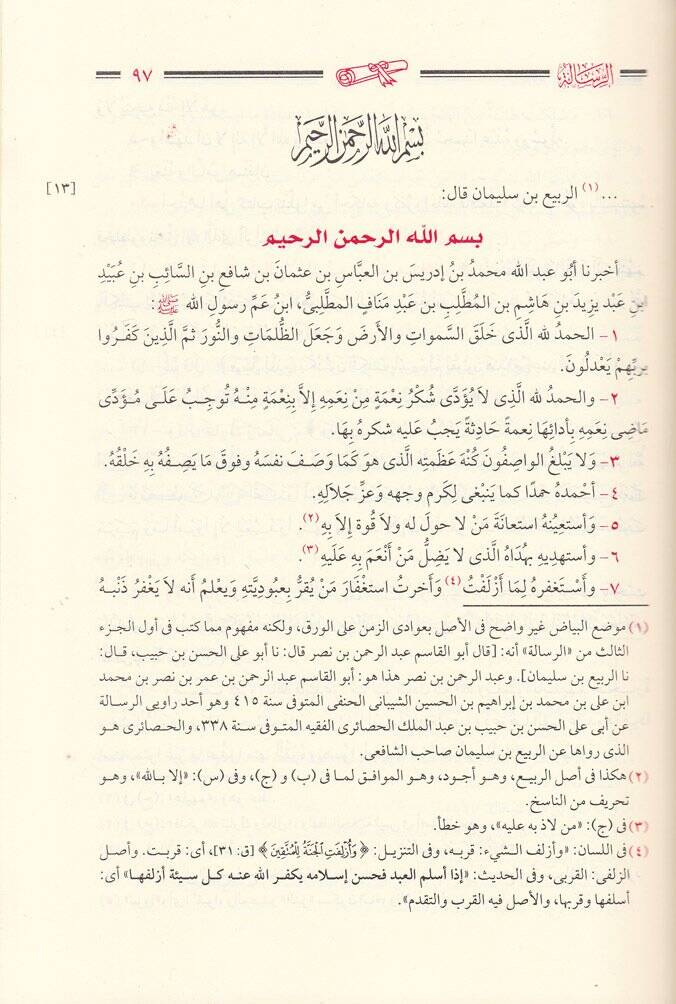 الرسالة ٩٧
بسم الله الرحمن الرحيم
... (١) الربيع بن سليمان قال: [١٣]
بسم الله الرحمن الرحيم
أخبرنا أبُو عبد الله محمدُ بنُ إدريسَ بن العبَّاسِ بن عثمانَ بن شافعِ بنِ السَّائِبِ بنِ عُبَيْدِ
ابنِ عَبْد يزيدَ بنِ هَاشِمِ بن المُطَّلِبِ بن عَبْدِ مَنَافٍ المطلِبىُّ، ابنُ عَمِّ رسولِ الله ﷺ:
١- الحمدُ لله الَّذى خَلَقَ السَّمواتِ والأرضَ وَجَعَلَ الظُّلمَاتِ والنُّورَ ثمَّ الَّذينَ كَفَرُوا
بربِّهِمْ يَعْدلُونَ.
٢- والحمدُ لله الَّذِى لاَ يُؤَدَّى شُكْرُ نِعْمَةٍ مِنْ نِعَمِهِ إلاَّ بِنِعْمَةٍ مِنْهُ تُوجِبُ عَلَى مُؤَدِّى
مَاضِى نِعَمِهِ بِأدائِهَا نِعمةً حَادِثةً يَجبُ عَليه شكرهُ بِهَا.
٣- وَلاَ يَبْلغُ الواصِفُونَ كُنْهَ عَظَمَتِه الَّذى هوَ كَمَا وَصَفَ نفسَهُ وفوقَ مَا يَصِفُهُ بِهِ خَلْقُهُ.
٤- أحْمدهُ حمدًا كما يَنبغى لِكَرمِ وجهِه وعَزِّ جَلاَلِهِ.
٥- وَأستعِينُهُ استعانَةَ مَنْ لا حولَ له ولاَ قُوةَ إلاَّ بِهِ (٢).
٦- وأستهديهِ بهُدَاهُ الَّذى لا يَضِلُّ مَنْ أَنْعَمَ بِهِ عَلَيْهِ (٣).
٧- وأَسْتَغفرهُ لِمَا أَزْلَفْتُ (٤) وَأخرتُ استغْفَارَ مَنْ يُقرُّ بِعبُودِيَّتِهِ وَيعْلمُ أنه لاَ يَغْفرُ ذَنْبَهُ
(١) موضع البياض غير واضح فى الأصل بعوادى الزمن على الورق، ولكنه مفهوم مما كتب فى أول الجزء
الثالث من «الرسالة» أنه: [قال أبو القاسم عبد الرحمن بن نصر قال: نا أبو على الحسن بن حبيب، قال:
نا الربيع بن سليمان]. وعبد الرحمن بن نصر هذا هو: أبو القاسم عبد الرحمن بن عمر بن نصر بن محمد
ابن على بن محمد بن إبراهيم بن الحسين الشيبانى الحنفى المتوفى سنة ٤١٥ وهو أحد راويى الرسالة
عن أبى على الحسن بن حبيب بن عبد الملك الحصائرى الفقيه المتوفى سنة ٣٣٨، والحصائرى هو
الذى رواها عن الربيع بن سليمان صاحب الشافعى.
(٢) هكذا فى أصل الربيع، وهو أجود، وهو الموافق لما فى (ب) و (ج)، وفى (س): «إلا بالله»، وهو
تحريف من الناسخ.
(٣) فى (ج): «من لاذ به عليه»، وهو خطأ.
(٤) فى اللسان: «وأزلف الشىء: قربه، وفى التنزيل: ﴿وَأُزْلِفَتِ الْجَنَّةُ لِلْمُتَّقِينَ﴾ [ق: ٣١]، أى: قربت. وأصل
الزلفى: القربى، وفى الحديث: «إذا أسلم العبد فحسن إسلامه يكفر الله عنه كل سيئة أزلفها» أى:
أسلفها وقربها، والأصل فيه القرب والتقدم».